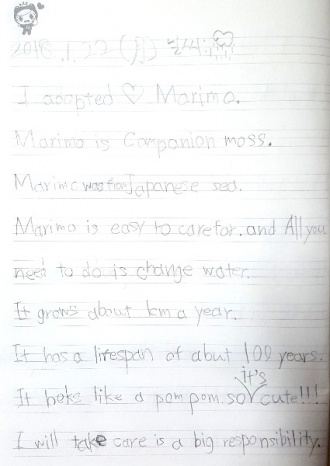 2018.1.22 (월) 날씨:
I adopted ♡ Marimo.
Marimo is Companion moss.
Marimo was from Japanese sea.
Marimo is easy to care for. and All you
need to do is change water.
It grows about 1cm a year.
It has a lifespan of abut 100 years.
It looks like a pom pom. so it's cute!!!
I will take care is a big responsibility.